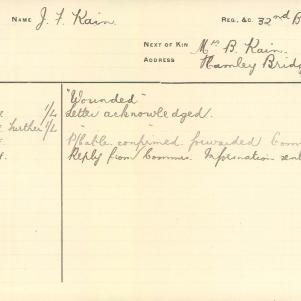 NAME J. F. Kain. REG., &C. 32nd B
NEXT OF KIN Mrs B. Kain.
ADDRESS Hamley Bridg
"Wounded"
1/L Letter acknowledged.
Further 1/L "
P/Cable confirmed forwarded Comm
Reply from Commrs. Information sent